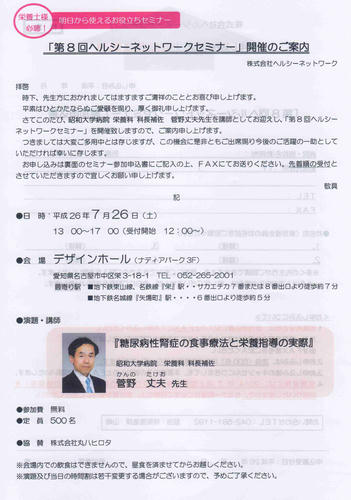 栄養士様、必聴！
明日から使えるお役立ちセミナー
「第８回ヘルシーネットワークセミナー」開催のご案内
株式会社ヘルシーネットワーク
拝啓
時下、先生方におかれましてはますますご清祥のこととお喜び申し上げます。
平素はひとかたならぬご愛顧を賜り、厚く御礼申し上げます。
さてこのたび、昭和大学病院 栄養科 科長補佐　菅野丈夫先生を講師としてお迎えし、「第８回ヘルシーネ
ットワークセミナー」を開催致しますので、ご案内申し上げます。
つきましては大変ご多用中とは存じますが、この機会に是非ともご出席賜り今後のご活躍の一助として
いただければ幸いに存じます。
お申し込みは裏面のセミナー参加申込書にご記入の上、ＦＡＸにてお送りください。先着順の受付と
させていただきますので宜しくお願い申し上げます。
敬具
記
●日　時：平成26年７月26日（土）
13：00～17：00（受付開始　12：00～）
●会　場　デザインホール（ナディアパーク3F）
愛知県名古屋市中区栄3-18-1　TEL：052-265-2001
最寄り駅 ■地下鉄東山線、名鉄線『栄』駅・・サカエチカ７番または８番出口より徒歩約７分
■地下鉄名城線『矢場町』駅・・・・６番出口より徒歩約５分
●演題・講師
『糖尿病性腎症の食事療法と栄養指導の実際』
昭和大学病院　栄養科 科長補佐
かんの　たけお
菅野　丈夫 先生
●参加費　無料
●定　員　500名
●協　賛　株式会社丸ハヒロタ
※会場内での飲食はできませんので、昼食を済ませてからお越しください。
※演題及び当日の時間割は若干変更する場合がございますので、予めご了承ください。